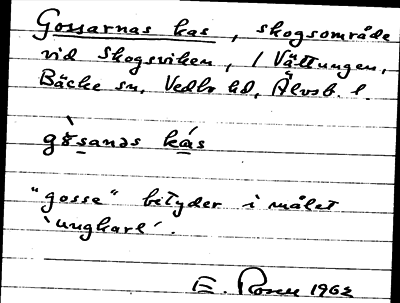 Gossarnas kas, skogsområde
vid Skogsviken, / Vättungen,
Bäcke sn, Vedbo hd, Älvsb. l.
gȍsanas kás
"gosse" betyder i målet
'ungkarl'.
E. Rosen 1962